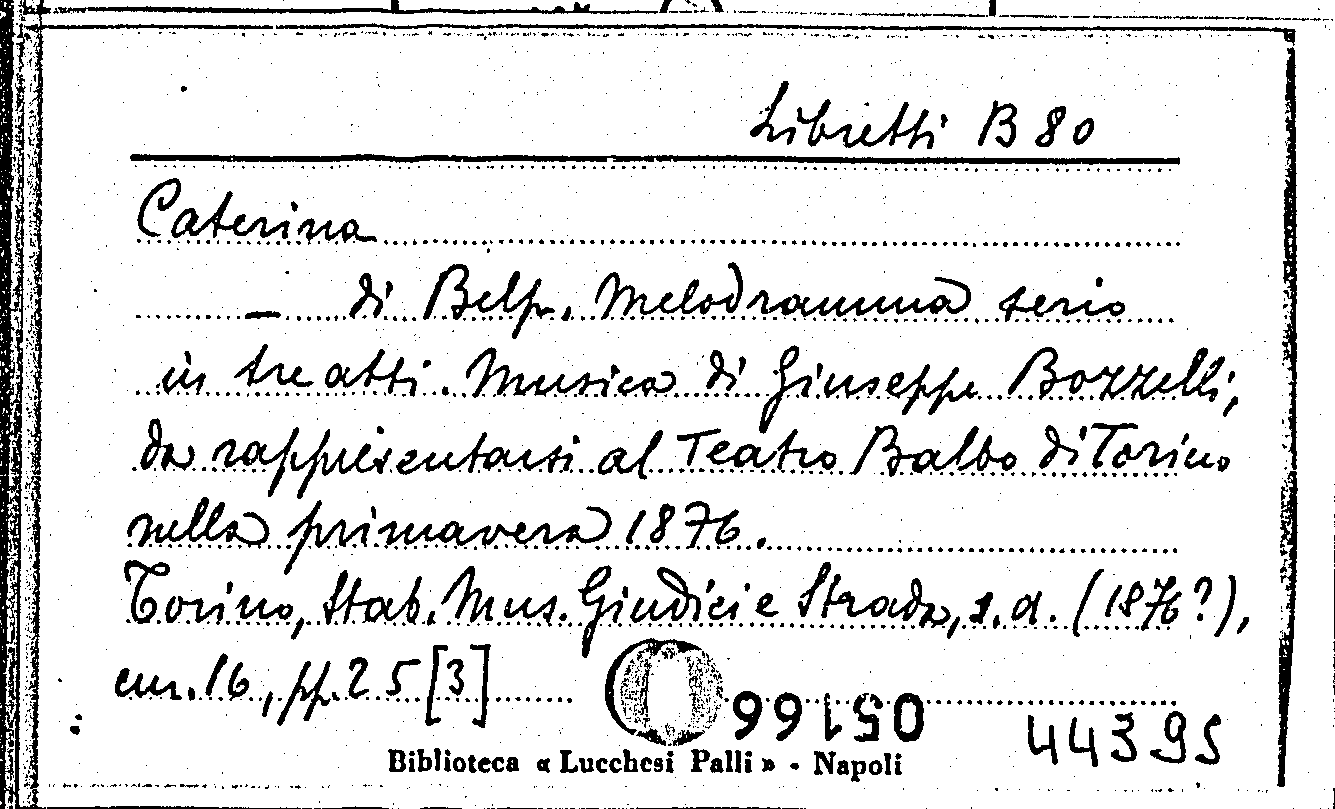 Libretti B 80
Caterina
— di Belp. Melodramma serio
in tre atti. Musica di Giuseppe Bozzelli,
da rappresentarsi al Teatro Balbo di Torino
nella primavera 1876.
Torino, Stab. Mus. Giudici e Strada, s. d. (1876?),
cm. 16, pp. 25 [3]
05166
44395
Biblioteca « Lucchesi Palli » - Napoli